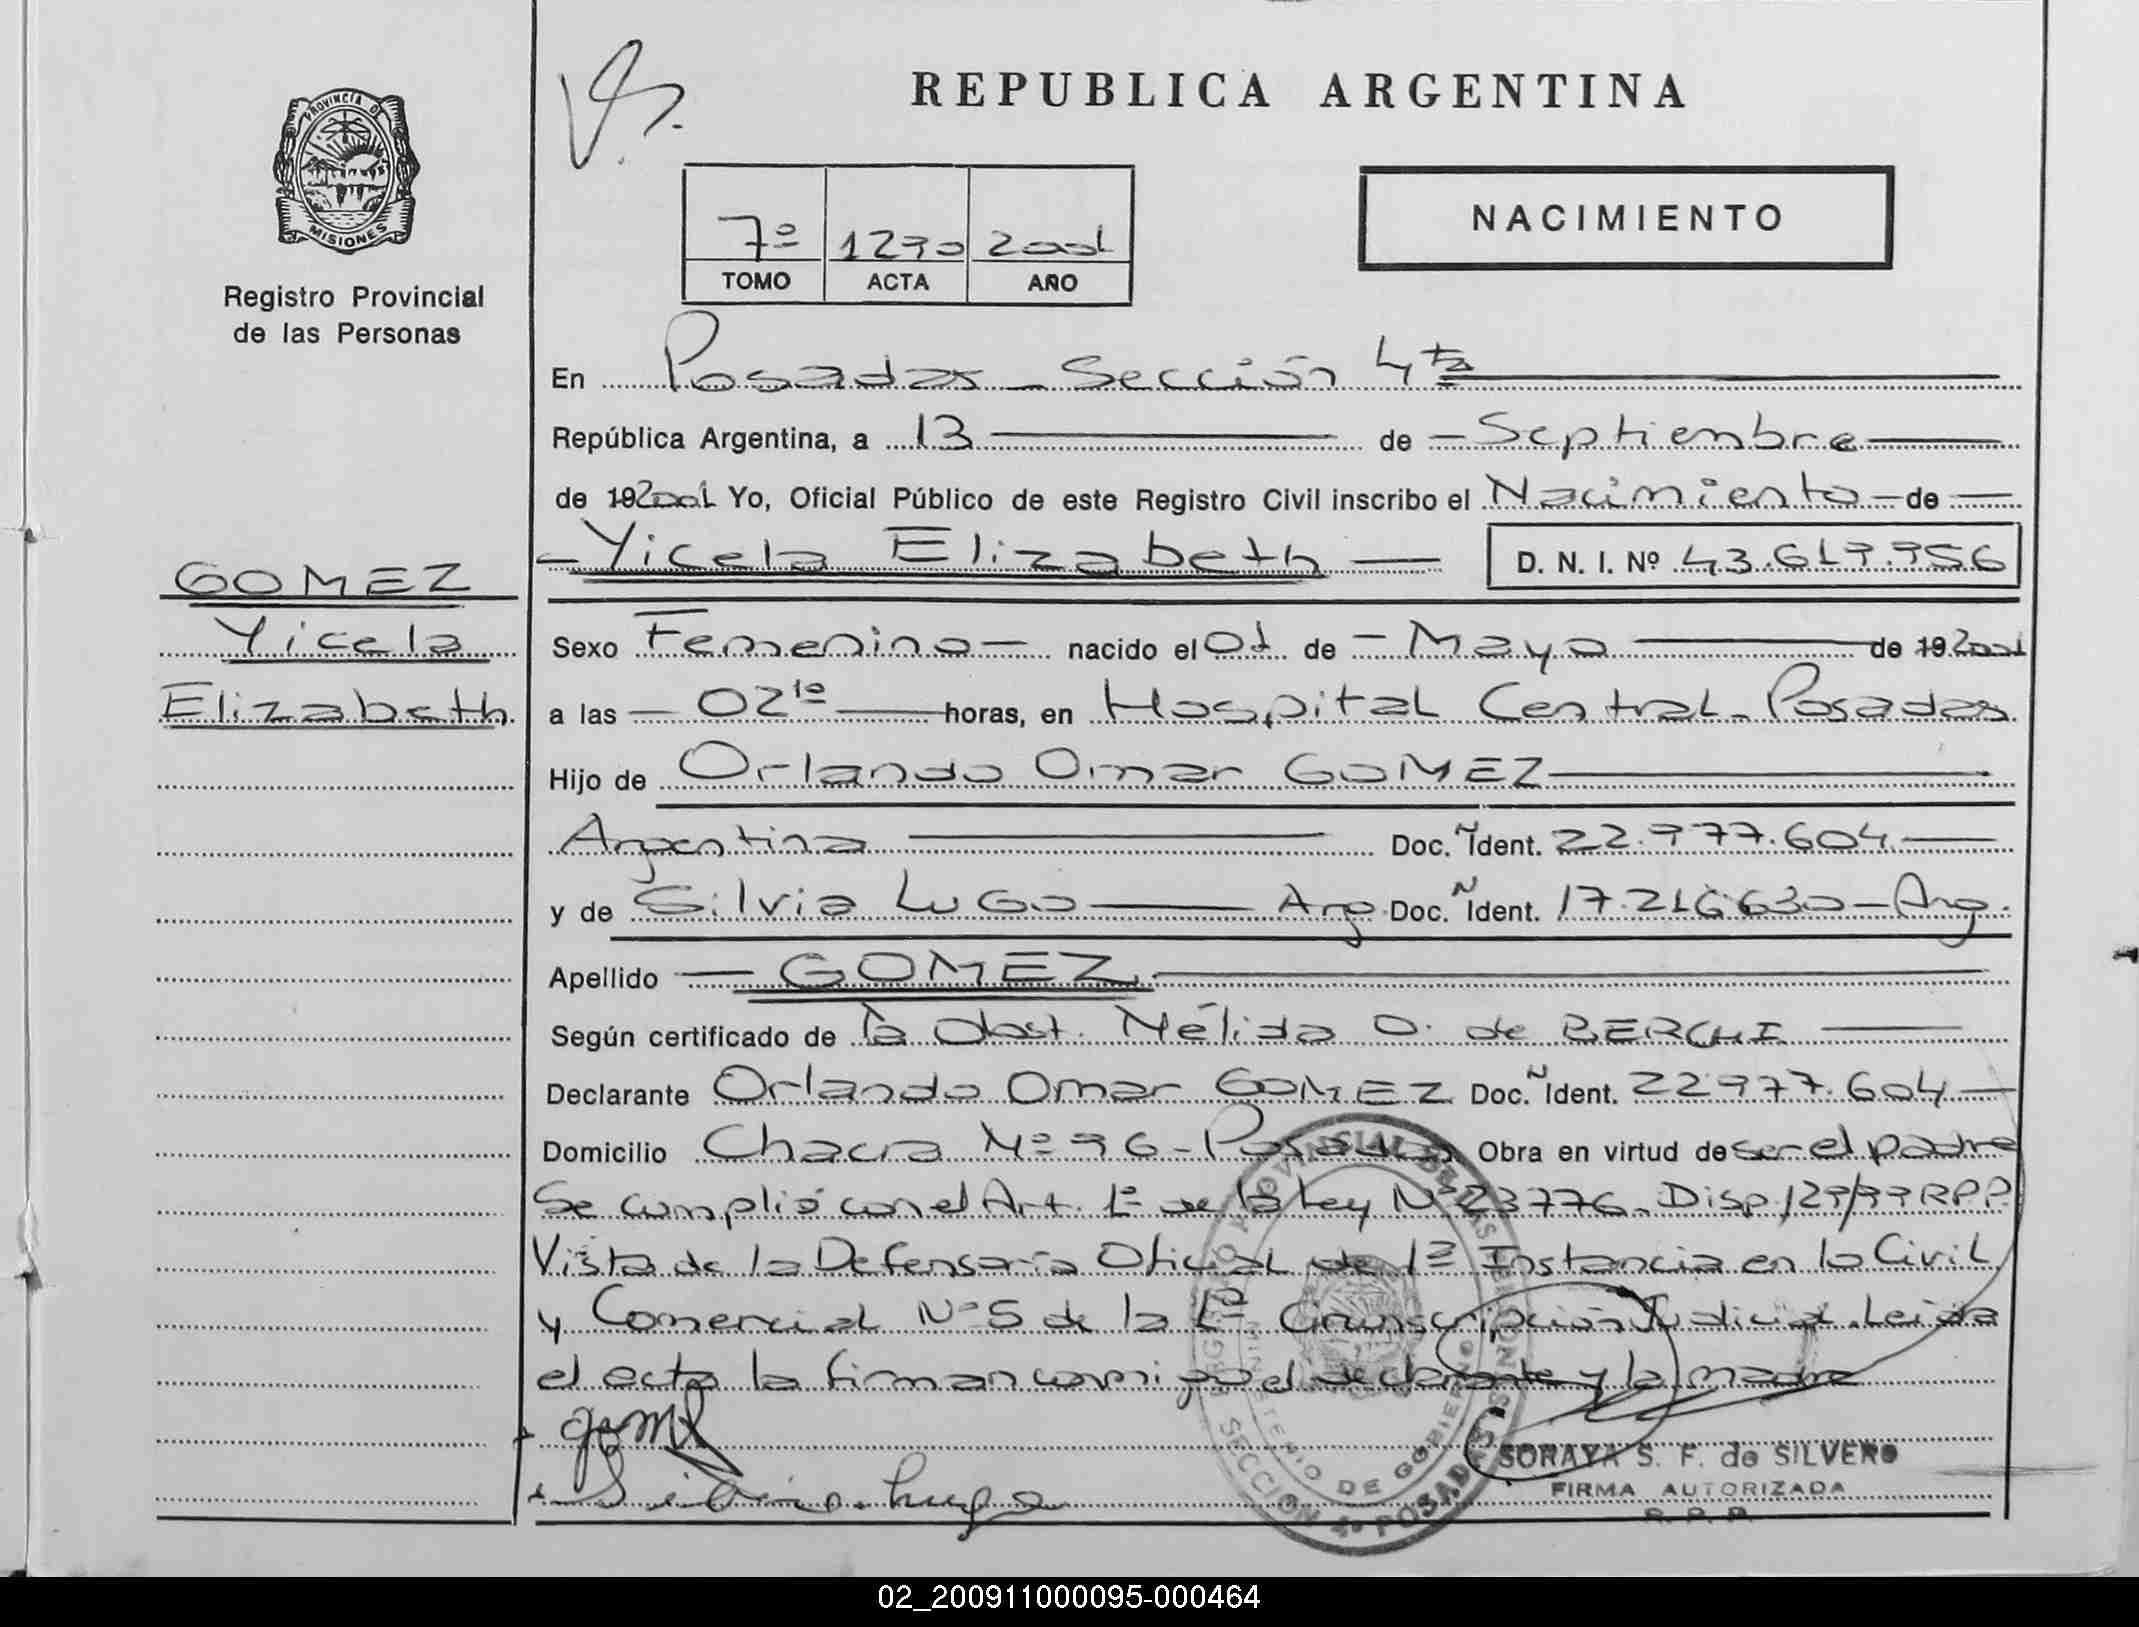 REPUBLICA ARGENTINA
PROVINCIA DE
MISIONES
Registro Provincial
de las Personas
7º 1290 2001
TOMO ACTA AÑO
NACIMIENTO
En Posadas - Sección 4ta
República Argentina, a 13 de Septiembre
de 192001 Yo, Oficial Público de este Registro Civil inscribo el Nacimiento de
Yicela Elizabeth D. N. I. Nº 43.619.956
GOMEZ
Yicela
Elizabeth
Sexo Femenino nacido el 01 de Mayo de 192001
a las 02¹⁰ horas, en Hospital Central - Posadas
Hijo de Orlando Omar GOMEZ
Argentina Doc. Ñ Ident. 22.977.604
y de Silvia LUGO Arg. Doc. Ñ Ident. 17.216.630 - Arg.
Apellido GOMEZ
Según certificado de la Obst. Nélida O. de BERCHI
Declarante Orlando Omar GOMEZ Doc. Ñ Ident. 22977.604
Domicilio Chacra Nº 96 - Posadas Obra en virtud de ser el padre
Se cumplió con el Art. 1º de la Ley Nº 23776 - Disp 129/99 RPP.
Vista de la Defensoría Oficial de 1ª Instancia en lo Civil
y Comercial Nº 5 de la 1ª Circunscripción Judicial. Leida
el acta la firman conmigo el declarante y la madre
Silvia Lugo
SORAYA S. F. de SILVERO
FIRMA AUTORIZADA
R. P. P.
REGISTRO PROVINCIAL DE LAS PERSONAS
MINISTERIO DE GOBIERNO
SECCION 4ª POSADAS
02_200911000095-000464